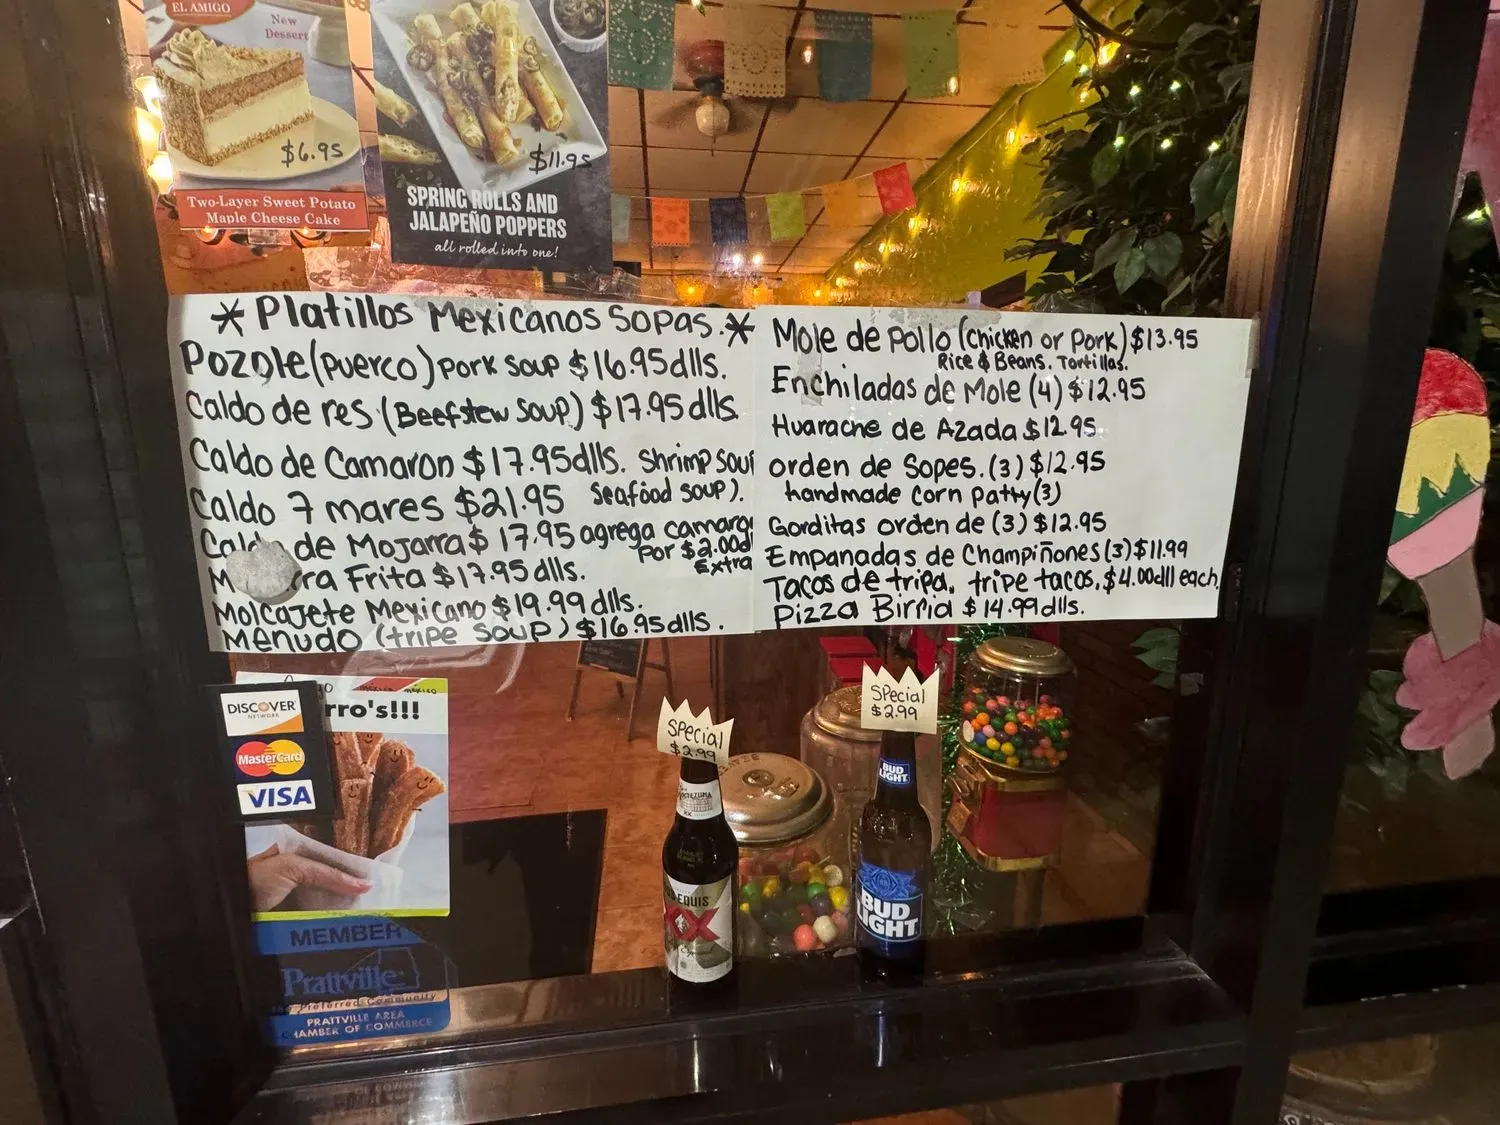 EL AMIGO
New
Dessert
$6.95
Two-Layer Sweet Potato
Maple Cheese Cake
$11.95
SPRING ROLLS AND
JALAPEÑO POPPERS
all rolled into one!
* Platillos Mexicanos Sopas. *
Pozole (Puerco) Pork Soup $16.95 dlls.
Caldo de res (Beefstew Soup) $17.95 dlls.
Caldo de Camaron $17.95 dlls. Shrimp Soup
Caldo 7 mares $21.95 Seafood Soup).
de Mojarra $17.95 agrega camaron
Por $2.00
Extra
Frita $17.95 dlls.
Molcajete Mexicano $19.99 dlls.
Menudo (tripe Soup) $16.95 dlls.
Mole de Pollo (Chicken or Pork) $13.95
Rice & Beans. Tortillas.
Enchiladas de Mole (4) $12.95
Huarache de Azada $12.95
orden de Sopes. (3) $12.95
handmade Corn Patty (3)
Gorditas orden de (3) $12.95
Empanadas de Champiñones (3) $11.99
Tacos de tripa. tripe tacos. $4.00 dll each.
Pizza Birria $14.99 dlls.
DISCOVER
NETWORK
MasterCard
VISA
rro's!!!
Special
$2.99
Special
$2.99
EQUIS
XX
BUD
LIGHT
BUD
LIGHT
MEMBER
Prattville
Preferred Community
PRATTVILLE AREA
CHAMBER OF COMMERCE